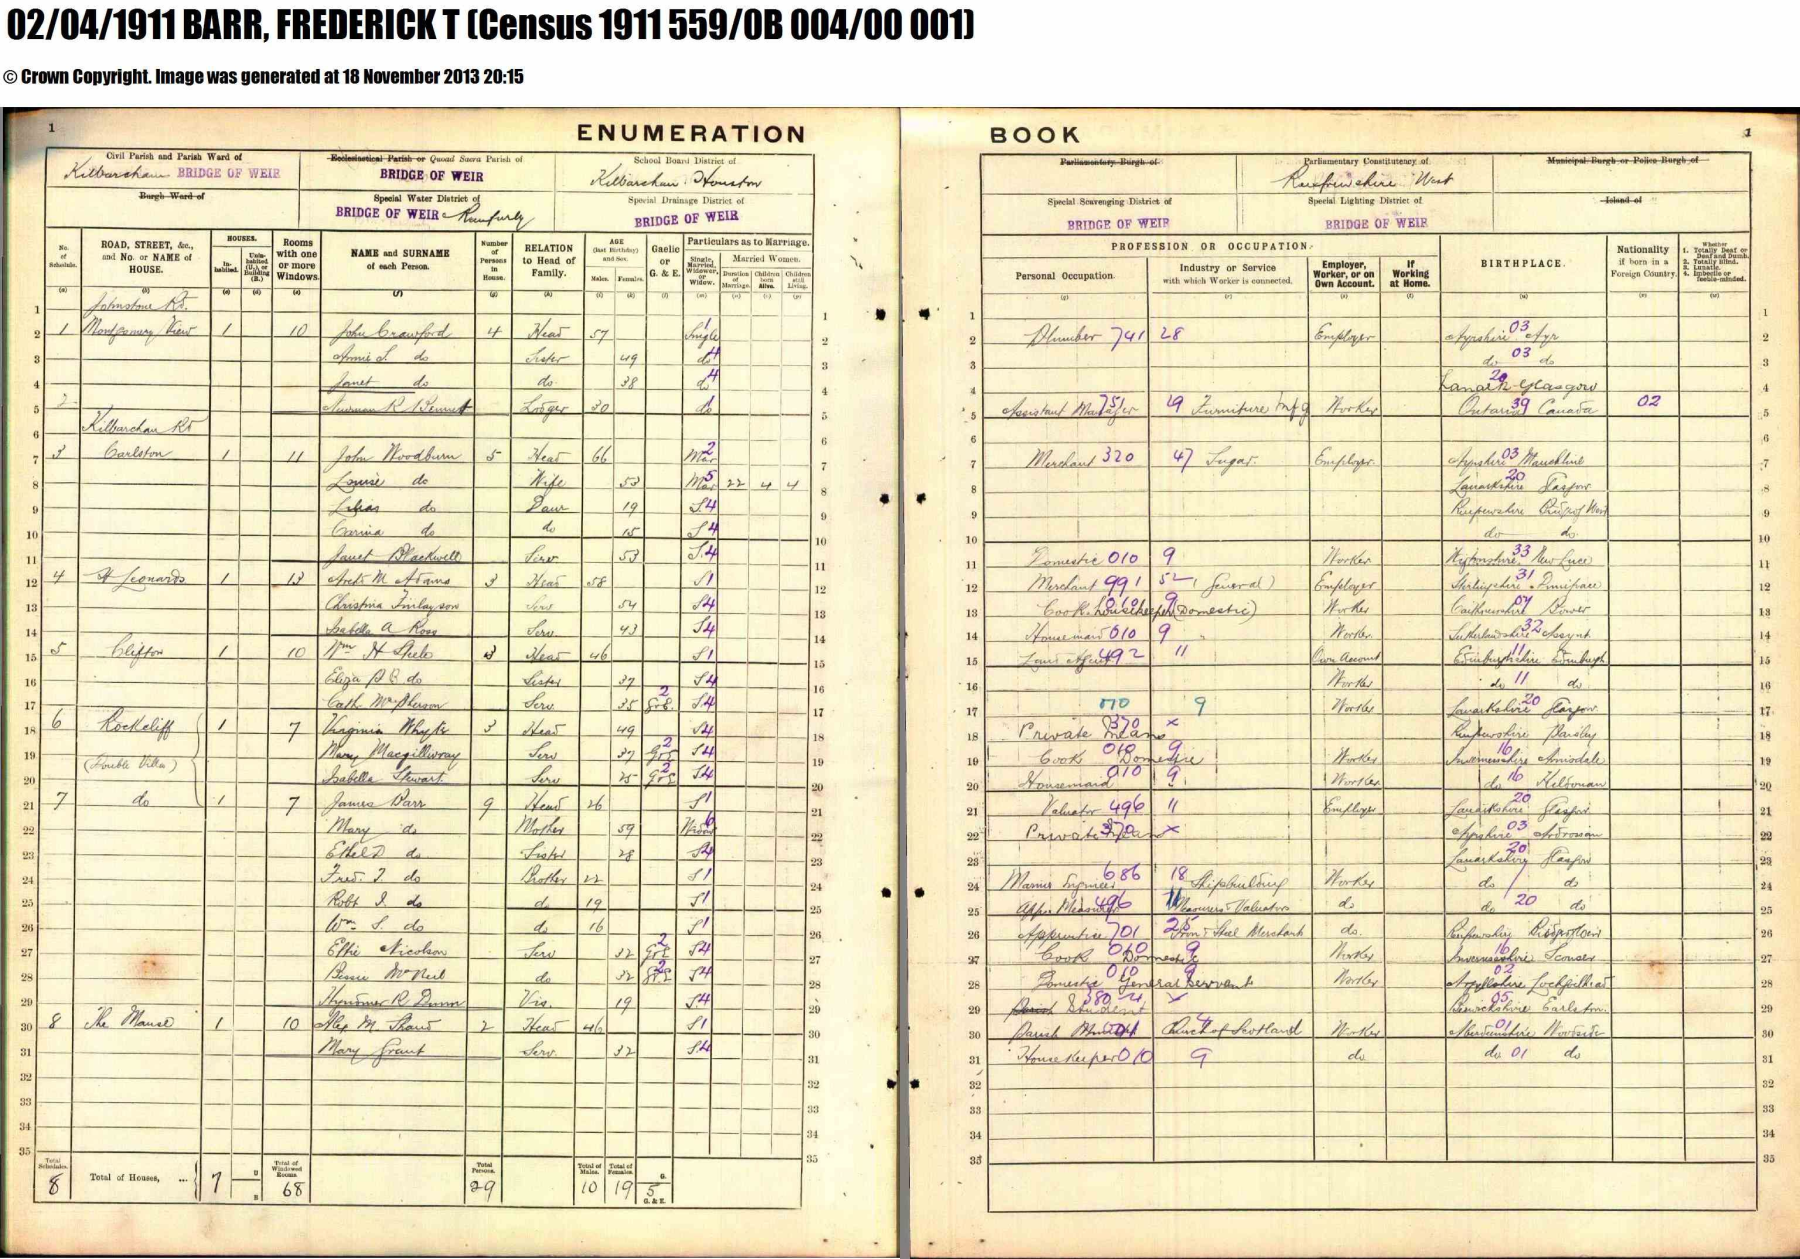 02/04/1911 BARR, FREDERICK T (Census 1911 559/0B 004/00 001)
© Crown Copyright. Image was generated at 18 November 2013 20:15
1 ENUMERATION BOOK 1
Civil Parish and Parish Ward of Kilbarchan BRIDGE OF WEIR
Ecclesiastical Parish or Quoad Sacra Parish of BRIDGE OF WEIR
School Board District of Kilbarchan Houston
Burgh Ward of
Special Water District of BRIDGE OF WEIR & Ranfurly
Special Drainage District of BRIDGE OF WEIR
Parliamentary Burgh of
Parliamentary Constituency of Renfrewshire West
Municipal Burgh or Police Burgh of
Special Scavenging District of BRIDGE OF WEIR
Special Lighting District of BRIDGE OF WEIR
Island of
No. of Schedule.
ROAD, STREET, &c., and No. or NAME of HOUSE.
HOUSES. Inhabited. Uninhabited (U.), or Building (B.)
Rooms with one or more Windows.
NAME and SURNAME of each Person.
Number of Persons in House.
RELATION to Head of Family.
AGE (last Birthday) and Sex. Males. Females.
Gaelic or G. & E.
Particulars as to Marriage. Single, Married, Widower, or Widow. Married Women. Duration of Marriage. Children born Alive. Children still Living.
PROFESSION OR OCCUPATION.
Personal Occupation.
Industry or Service with which Worker is connected.
Employer, Worker, or on Own Account.
If Working at Home.
BIRTHPLACE.
Nationality if born in a Foreign Country.
Whether 1. Totally Deaf or Deaf and Dumb. 2. Totally Blind. 3. Lunatic. 4. Imbecile or feeble-minded.
1 Johnstone Rd.
2 1 Montgomery View 1 10 John Crawford 4 Head 57 Single 1 Plumber 741 28 Employer Ayrshire 03 Ayr
3 Annie S. do Sister 49 do 4 do 03 do
4 Janet do do 38 do 4 Lanark 20 Glasgow
5 2 Norman R Lodger 30 do 1 Assistant Manager 751 29 Furniture Mfg Worker Ontario 39 Canada 02
6 Kilbarchan Rd
7 3 Carlston 1 11 John Woodburn 5 Head 66 Mar 2 Merchant 320 47 Sugar. Employer. Ayrshire 03 Mauchline
8 Louise do Wife 53 Mar 5 22 4 4 Lanarkshire 20 Glasgow
9 Lilias do Daur 19 S4 Renfrewshire Bridge of Weir
10 Carina do do 15 S4 do do
11 Janet Blackwell Serv 53 S.4 Domestic 010 9 Worker Wigtownshire 33 New Luce
12 4 St Leonards 1 13 Archd M Adams 3 Head 58 S1 Merchant 991 52 (General) Employer Stirlingshire 31 Dunipace
13 Christina Finlayson Serv 54 S4 Cook housekeeper 010 9 (Domestic) Worker Caithnesshire 07 Bower
14 Isabella A Ross Serv 43 S4 Housemaid 010 9 " Worker. Sutherlandshire 32 Assynt
15 5 Clifton 1 10 Wm H Steele 3 Head 46 S1 Land Agent 492 11 Own Account Edinburghshire 11 Edinburgh
16 Eliza B do Sister 37 S4 Worker do 11 do
17 Cath. McPherson Serv 35 G&E 2 S4 010 9 Worker Lanarkshire 20 Glasgow
18 6 Rockcliff 1 7 Virginia Whyte 3 Head 49 S4 Private Means 370 x Renfrewshire Paisley
19 (Double Villa) Mary Macgillivray Serv 37 G&E 2 S4 Cook 010 9 Domestic Worker Invernesshire 16 Arnisdale
20 Isabella Stewart Serv 25 G&E 2 S4 Housemaid 010 9 " Worker do 16
21 7 do 1 7 James Barr 9 Head 26 S1 Valuator 496 11 Employer Lanarkshire 20 Glasgow
22 Mary do Mother 59 Widow 6 Private Means 370 x Ayrshire 03 Ardrossan
23 Ethel D do Sister 28 S4 Lanarkshire 20 Glasgow
24 Fred. T. do Brother 22 S1 Marine Engineer 686 18 Shipbuilding Worker do do
25 Robt I. do do 19 S1 Appr Measurer 496 11 Measurers & Valuators do do 20 do
26 Wm S. do do 16 S1 Apprentice 701 25 Iron & Steel Merchant do. Renfrewshire Bridge of Weir
27 Effie Nicolson Serv 32 G&E 2 S4 Cook 010 9 Domestic Worker Invernesshire 16 Sconser
28 Bessie McNeil do 32 G&E 2 S4 Domestic 010 9 General Servant Worker Argyllshire 02 Lochgilphead
29 R. Dunn Vis. 19 S4 Student 380 Berwickshire 05 Earlston.
30 8 The Manse 1 10 Alex M. Shand 2 Head 46 S1 Parish Minister Church of Scotland Worker Aberdeenshire 01 Woodside
31 Mary Grant Serv. 32 S.4 Housekeeper 010 9 do. do 01 do
32
33
34
35
Total Schedules. 8 Total of Houses, ... 7 U B Total of Windowed Rooms. 68 Total Persons. 29 Total of Males. 10 Total of Females. 19 G. 5 G. & E.